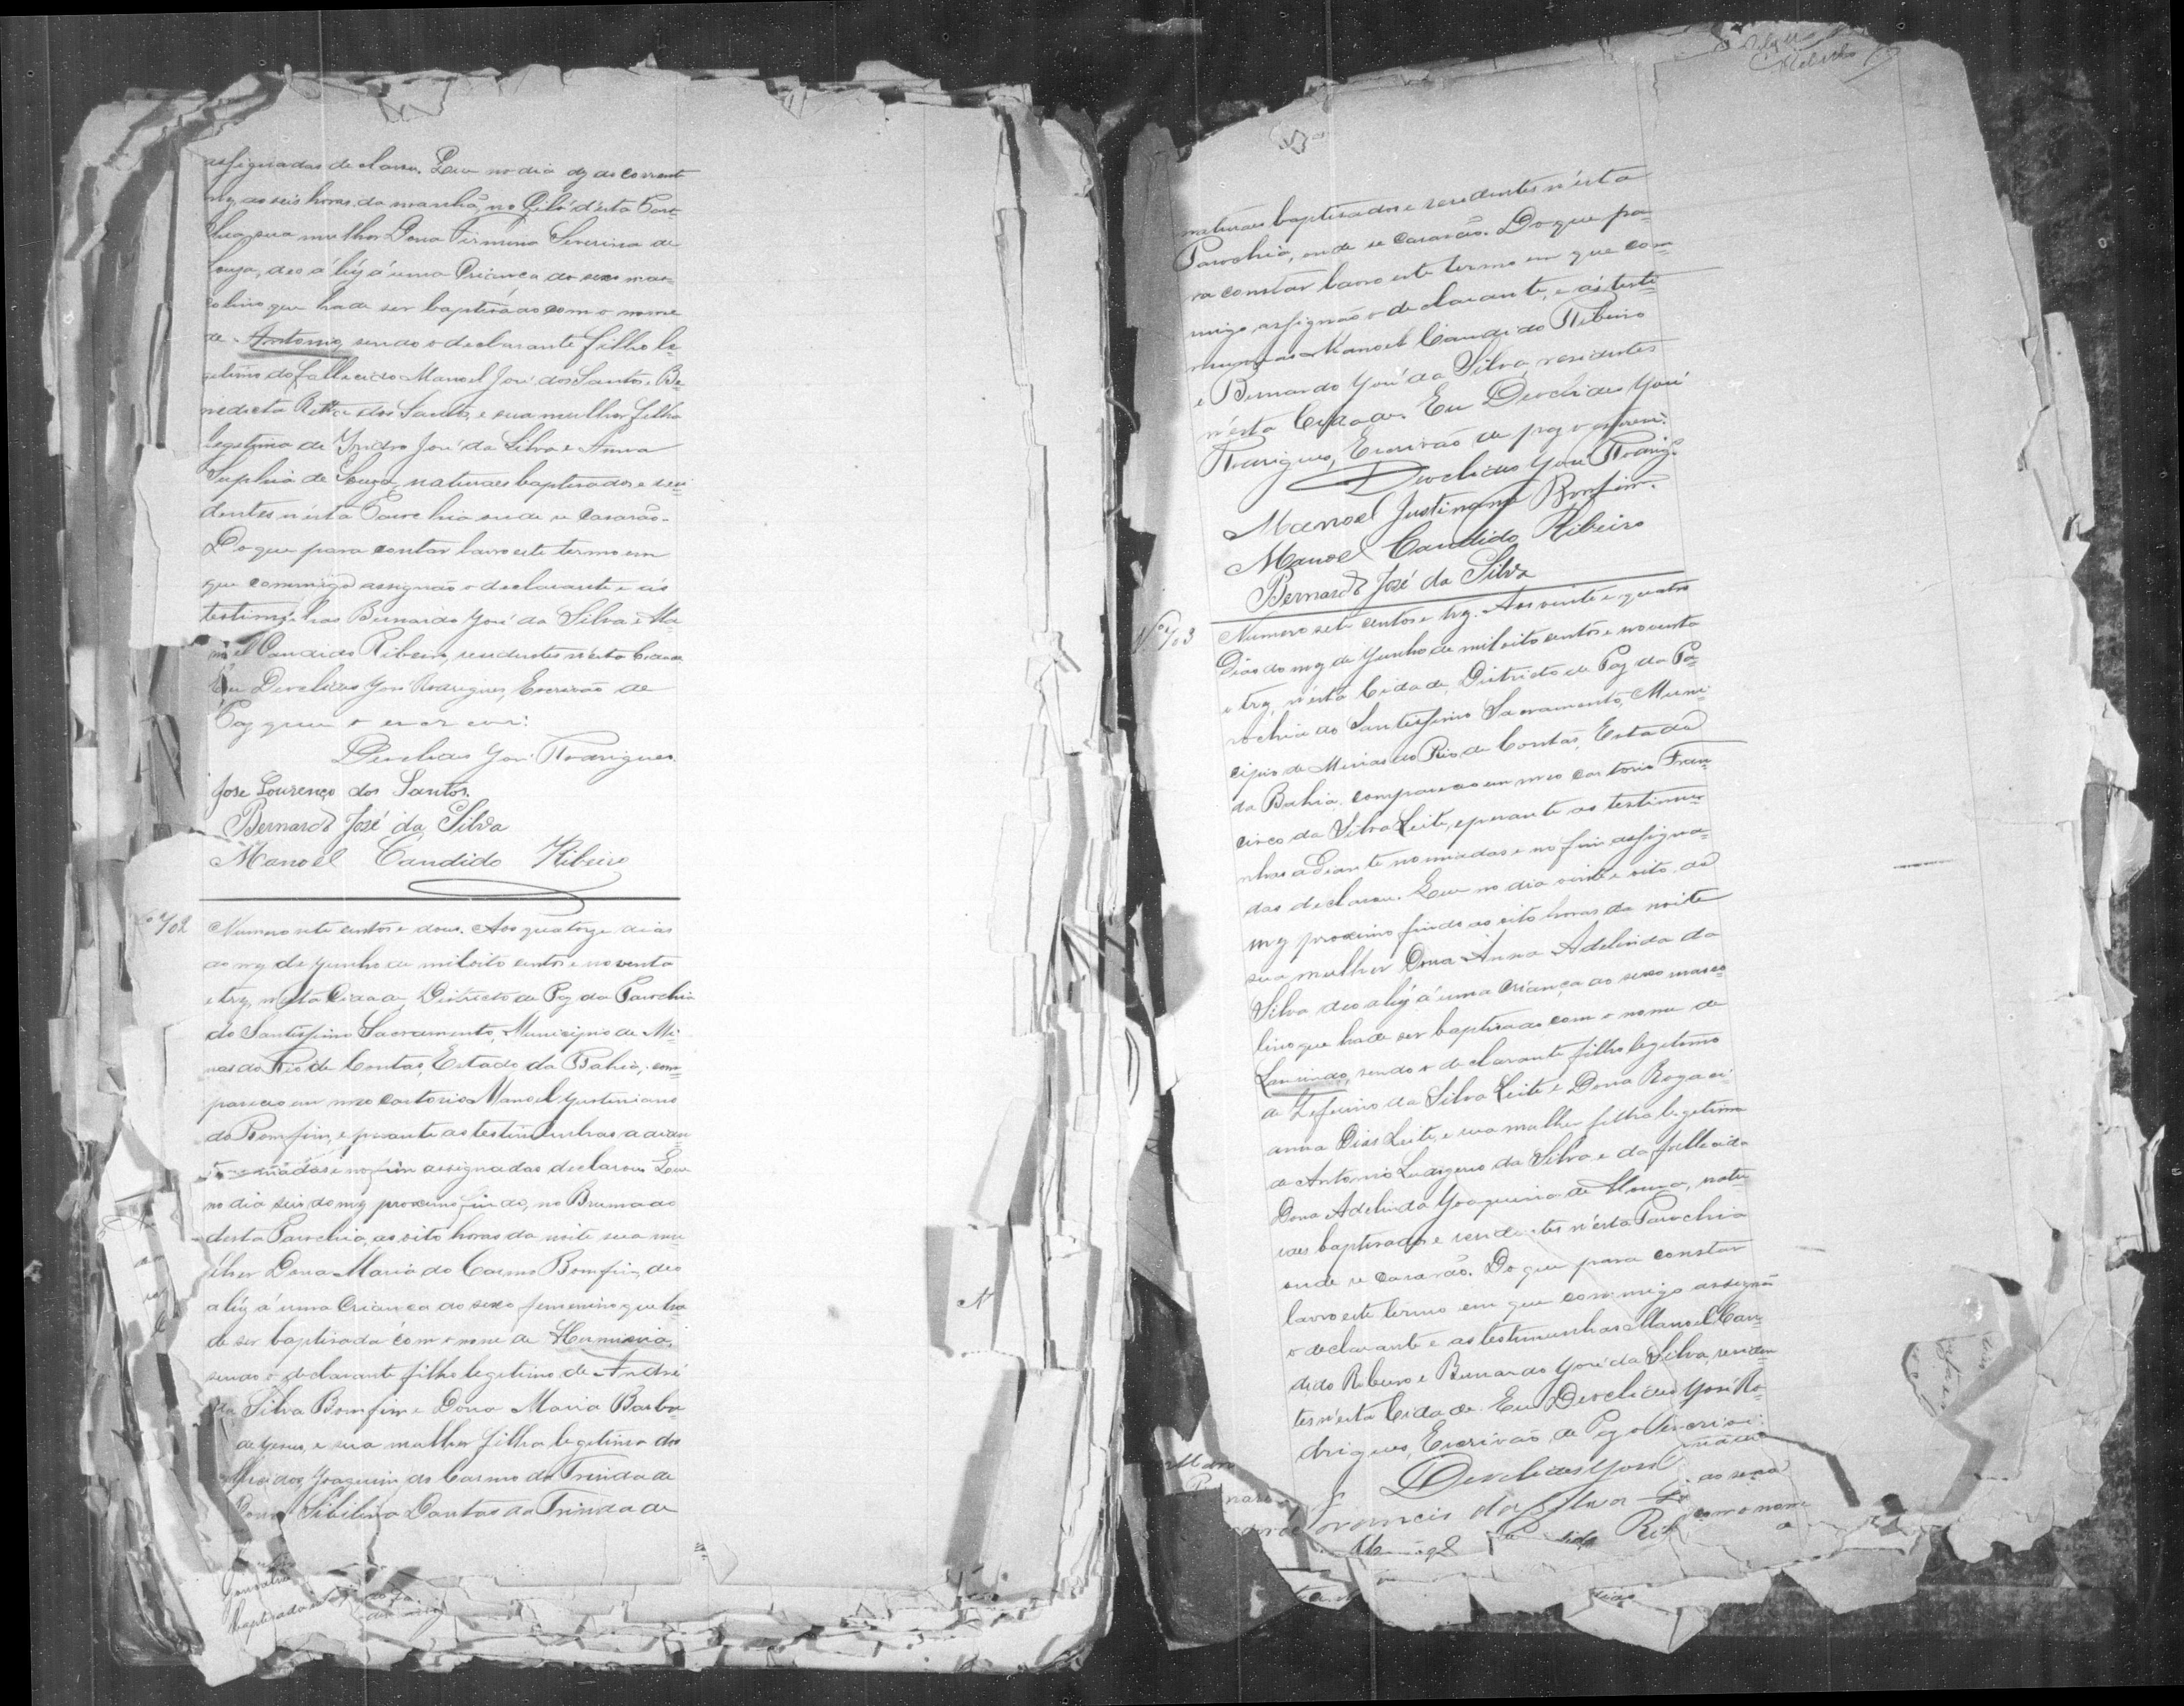 assignadas declarou. Que no dia dez do corrente
mez as seis horas da manhã, no Giló d'esta Paro-
chia sua mulher Dona Firmina Severina de
Souza, deo á luz á uma Criança do sexo mas-
colino que hade ser baptisado com o nome
de Antonio, sendo o declarante filho le-
gitimo do fallecido Manoel José dos Santos e Be-
nedicta Ritta dos Santos, e sua mulher filha
legitima de Izidro José da Silva e Anna
de Souza, naturaes baptisados e resi-
dentes n'esta Parochia onde se casarão.
Do que para contar lavro este termo em
que commigo assignão o declarante e as
testimunhas Bernardo José da Silva e Ma-
noel Candido Ribeiro, residentes n'esta Cidade
Eu Deoclides José Rodrigues, Escrivão de
Paz que o escrevi:
Deoclides José Rodrigues.
Jose Lourenço dos Santos.
Bernardo José da Silva
Manoel Candido Ribeiro
No 702
Numero sete centos e dous. Aos quatorze dias
do mez de Junho de mil oito centos e noventa
e trez, n'esta Cidade, Districto de Paz da Parochia
do Santissimo Sacramento, Municipio de Mi-
nas do Rio de Contas, Estado da Bahia, com-
pareceo em meo cartorio Manoel Justiniano
do Bomfim, e perante as testimunhas a dian-
te nomiadas e no fim assignadas declarou Que
no dia seis do mez proximo findo, no Brumado
desta Parochia, as oito horas da noite sua mu-
lher Dona Maria do Carmo Bomfim, deo
a luz á uma Criança do sexo femenino que ha
de ser baptisada com o nome de Herminia,
sendo o declarante filho legitimo de André
da Silva Bomfim e Dona Maria Barbo-
de Jesus, e sua mulher filha legitima dos
fallecidos Joaquim do Carmo da Trindade
Dona Sibilina Dantas da Trindade
baptisado
naturaes baptisados e residentes n'esta
Parochia, onde se casarão. Do que pa-
ra constar lavro este termo em que com-
migo assignão o declarante, e as testi-
munhas Manoel Candido Ribeiro
e Bernardo José da Silva, residentes
n'esta Cidade. Eu Deoclides José
Rodrigues, Escrivão de paz o escrevi.
Deoclides José Rodrig.
Manoel Justiniano Bomfim.
Manoel Candido Ribeiro
Bernardo José da Silva
No 703
Numero sete centos e trez. Aos vinte e quatro
Dias do mez de Junho de mil oito centos e noventa
e trez, n'esta Cidade, Districto de Paz da Pa-
rochia do Santissimo Sacramento, Muni-
cipio de Minas do Rio de Contas, Estado
da Bahia. compareceo em meo cartorio Fran-
cisco da Silva Leite, e perante as testimu-
nhas a Diante nomiadas e no fim assigna-
das declarou. Que no dia vinte e oito do
mez proximo findo as oito horas da noite
sua mulher Dona Anna Adelinda da
Silva deo a luz á uma Criança do sexo masco-
lino que hade ser baptisado com o nome de
Laurindo, sendo o declarante filho legitimo
de Zeferino da Silva Leite e Dona Rogaci-
anna Dias Leite, e sua mulher filha legitima
de Antonio Ludgerio da Silva e da fallecida
Dona Adelinda Joaquina de Moura, natu-
raes baptisados e residentes n'esta Parochia
onde se casarão. Do que para constar
lavro este termo em que commigo assignão
o declarante e as testimunhas Manoel Can-
dido Ribeiro e Bernardo José da Silva, residen-
tes n'esta Cidade. Eu Deoclides José Ro-
drigues, Escrivão de Paz o escrevi:
Deoclides José
do sexo
da Silva
com o nome